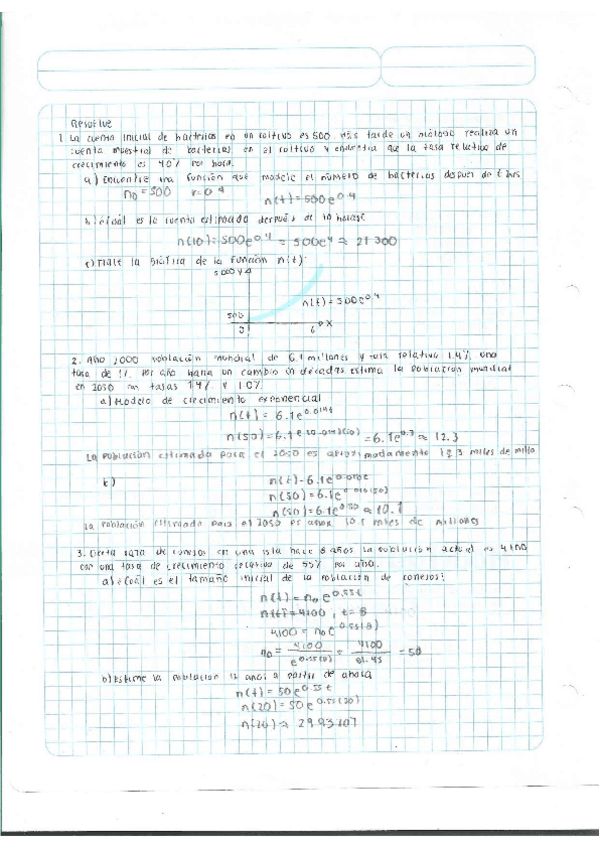 Resuelve
1. La cuenta inicial de bacterias en un cultivo es 500. Más tarde un biólogo realiza un
cuenta muestral de bacterias en el cultivo y encuentra que la tasa relativa de
crecimiento es 40% por hora.
a) Encuentre una función que modele el número de bacterias después de t hrs
n0 = 500 r = 0.4
n(t) = 500e^0.4
b) ¿Cuál es la cuenta estimada después de 10 horas?
n(10) = 500e^0.4 = 500e^4 ≈ 27 300
c) Trace la gráfica de la función n(t):
5000 y
n(t) = 500e^0.4
500
0 6 x
2. Año 2000 población mundial de 6.1 millones y tasa relativa 1.4%, una
tasa de 1% por año haría un cambio en décadas estima la población mundial
en 2050 con tasas 1.4% y 1.0%
a) Modelo de crecimiento exponencial
n(t) = 6.1e^0.014t
n(50) = 6.1e = 6.1e^0.7 ≈ 12.3
La población estimada para el 2050 es aproximadamente 12.3 miles de millo
n(t) = 6.1e^0.010t
n(50) = 6.1e^0.010(50)
n(50) = 6.1e^0.50 ≈ 10.1
La población estimada para el 2050 es aprox 10.1 miles de millones
3. Cierta raza de conejos en una isla hace 8 años la población actual es 4100
con una tasa de crecimiento de 55% por año.
a) ¿Cuál es el tamaño inicial de la población de conejos?
n(t) = n0 e^0.55t
n(t) = 4100, t = 8
4100 = n0 e^0.55(8)
n0 = 4100/e^0.55(8) = 4100/81.45 = 50
b) Estime la población 12 años a partir de ahora
n(t) = 50e^0.55t
n(20) = 50e^0.55(20)
n(20) ≈ 2993707